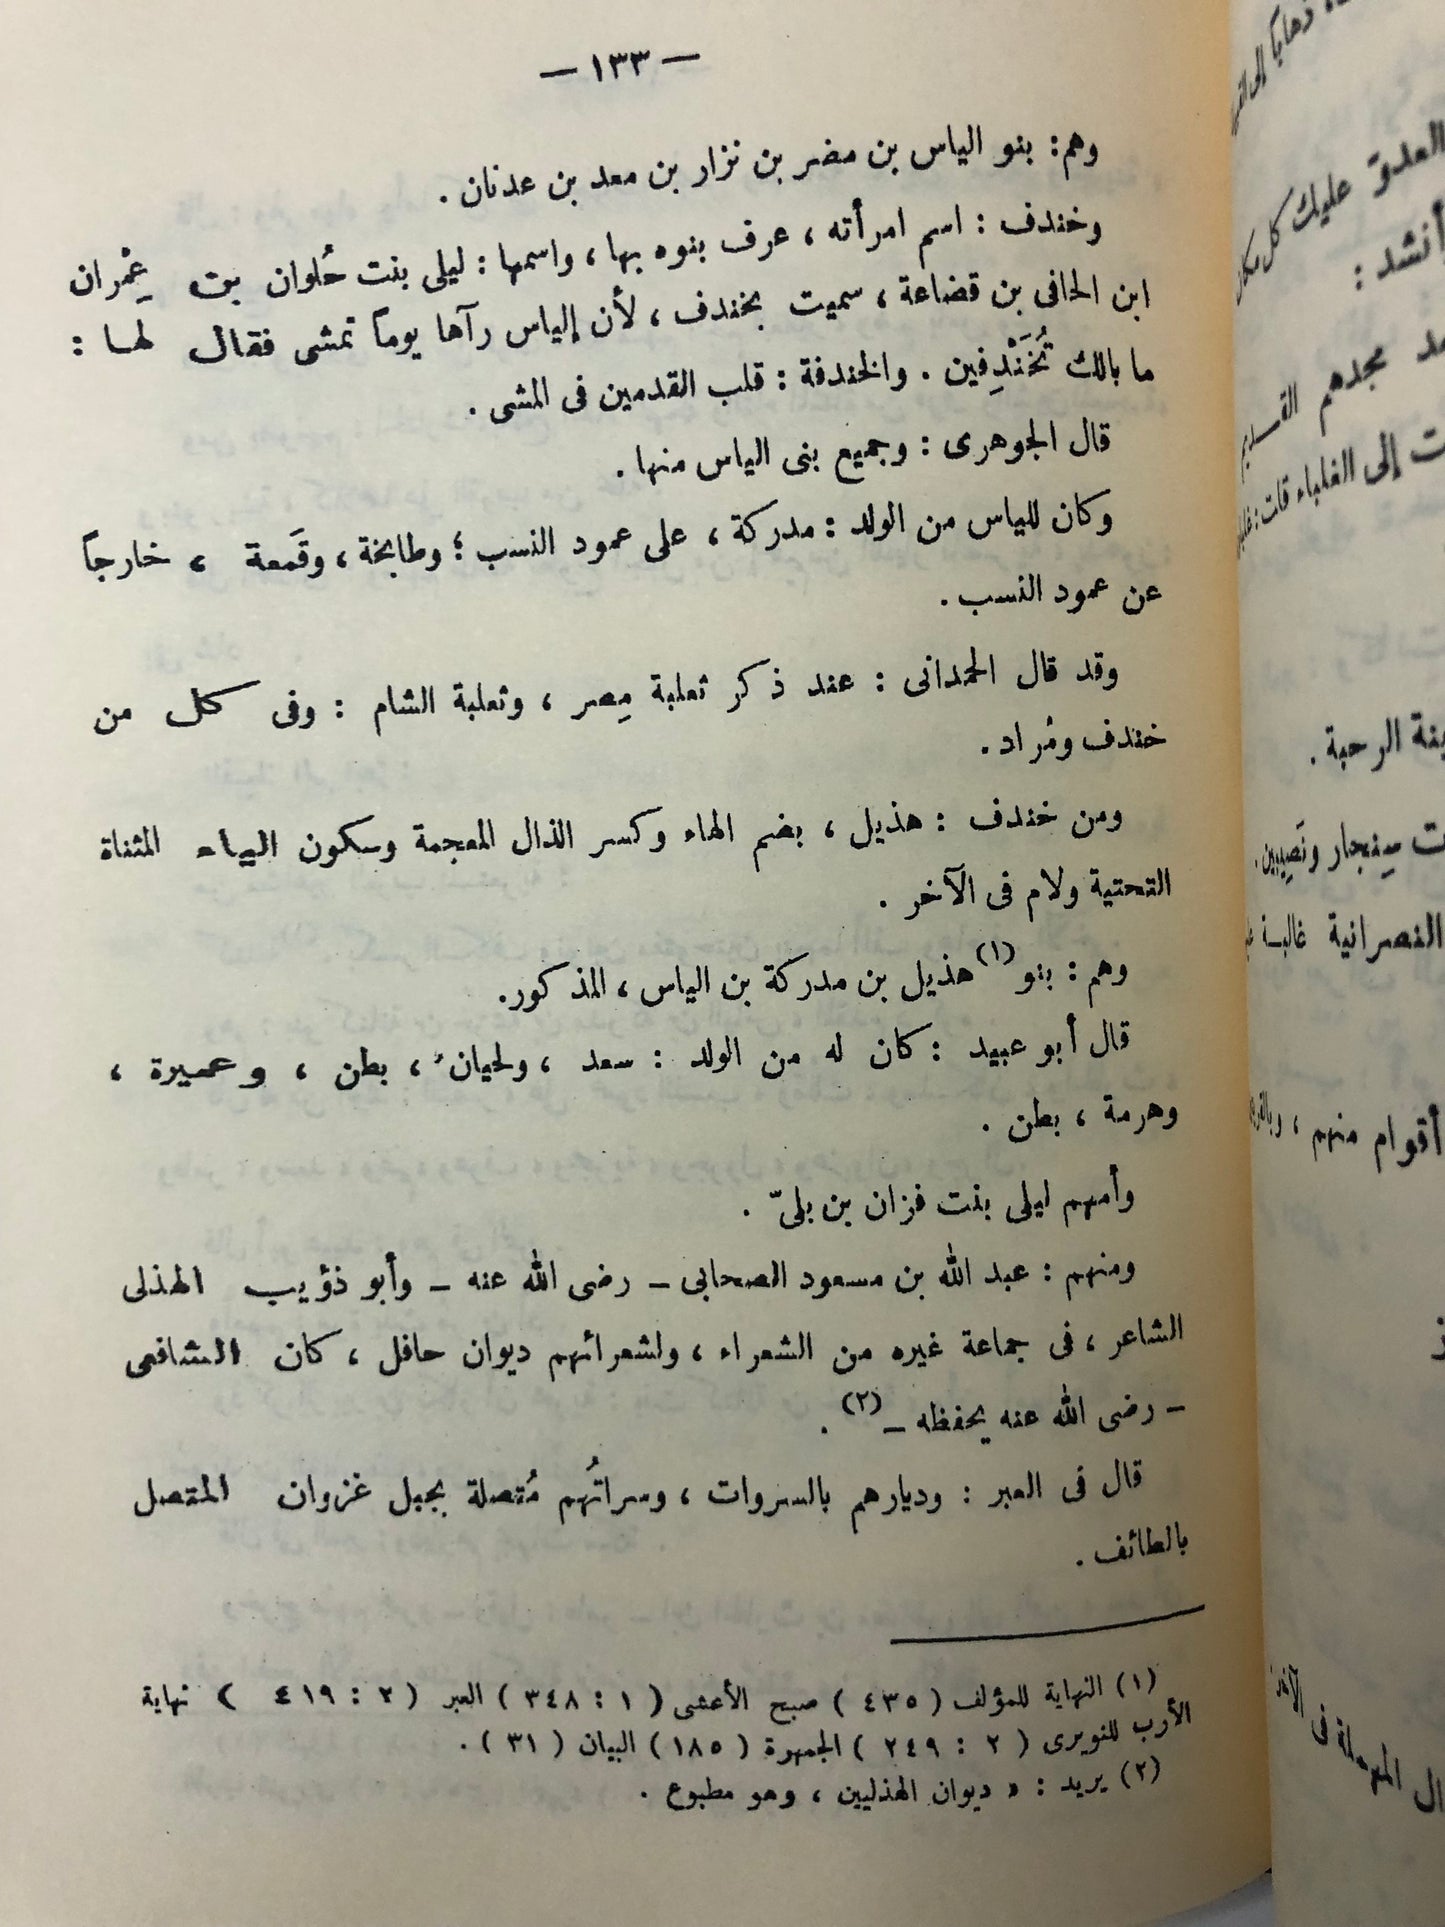 — ١٣٣ —
وهم: بنو الياس بن مضر بن نزار بن معد بن عدنان .
وخندف : اسم امرأته ، عرف بنوه بها ، واسمها : ليلى بنت حُلوان بن عِمْران
ابن الحافى بن قضاعة ، سميت بخندف ، لأن إلياس رآها يوماً تمشى فقال لها :
ما بالك تُخَنْدِفين . والخندفة : قلب القدمين فى المشى .
قال الجوهرى : وجميع بنى الياس منها .
وكان للياس من الولد : مدركة ، على عمود النسب ؛ وطابخة ، وقَمعة ، خارجاً
عن عمود النسب .
وقد قال الحمدانى : عند ذكر ثعلبة مِصر ، وثعلبة الشام : وفى كل من
خندف ومُراد .
ومن خندف : هذيل ، بضم الهاء وكسر الذال المعجمة وسكون الياء المثناة
التحتية ولام فى الآخر .
وهم : بنو (١) هذيل بن مدركة بن الياس ، المذكور .
قال أبو عبيد : كان له من الولد : سعد ، ولحيان ، بطن ، وعميرة ،
وهرمة ، بطن .
وأمهم ليلى بنت فزان بن بلىّ .
ومنهم : عبد الله بن مسعود الصحابى – رضى الله عنه – وأبو ذؤيب الهذلى
الشاعر ، فى جماعة غيره من الشعراء ، ولشعرائهم ديوان حافل ، كان الشافعى
– رضى الله عنه يحفظه – (٢) .
قال فى العبر : وديارهم بالسروات ، وسراتُهم مُتصلة بجبل غزوان المتصل
بالطائف .
(١) النهاية للمؤلف ( ٤٣٥ ) صبح الأعشى ( ١ : ٣٤٨ ) العبر ( ٢ : ٤١٩ ) نهاية
الأرب للنويرى ( ٢ : ٢٤٩ ) الجمهرة ( ١٨٥ ) البيان ( ٣١ ) .
(٢) يريد : « ديوان الهذليين ، وهو مطبوع .
العدوّ عليك كل مكان
أنشد :
مجدهم القديم
إلى الغلباء
الرحبة .
سِنجار ونَصِيبين .
النصرانية غالبة
أقوام منهم ،
المهملة فى الآخر